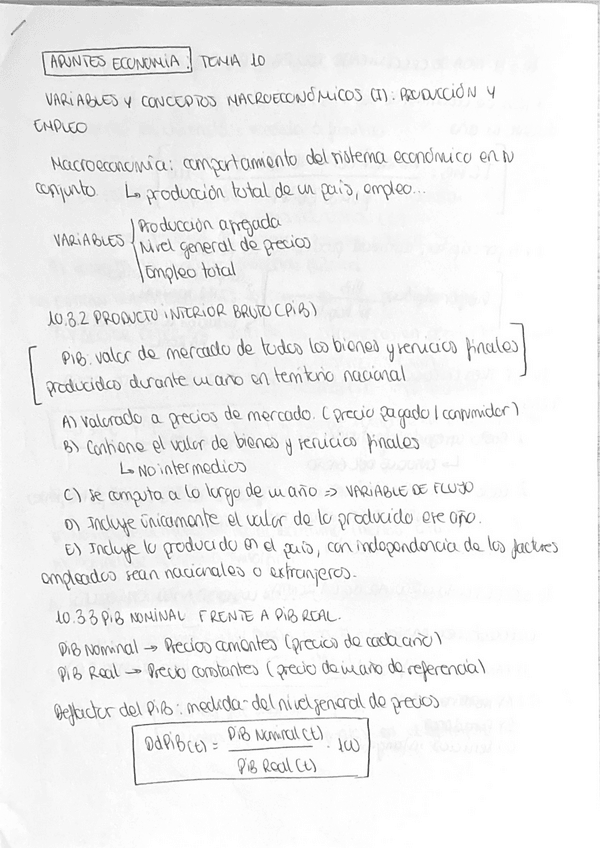 APUNTES ECONOMÍA: TEMA 10
VARIABLES Y CONCEPTOS MACROECONÓMICOS (I): PRODUCCIÓN Y
EMPLEO
Macroeconomía: comportamiento del sistema económico en su
conjunto ↳ producción total de un país, empleo...
VARIABLES Producción agregada
Nivel general de precios
Empleo total
10.3.2 PRODUCTO INTERIOR BRUTO (PIB)
PIB: valor de mercado de todos los bienes y servicios finales
producidos durante un año en territorio nacional
A) Valorado a precios de mercado. (precio pagado / consumidor)
B) Contiene el valor de bienes y servicios finales
↳ No intermedios
C) Se computa a lo largo de un año => VARIABLE DE FLUJO
D) Incluye únicamente el valor de lo producido ese año.
E) Incluye lo producido en el país, con independencia de los factores
empleados sean nacionales o extranjeros.
10.3.3 PIB NOMINAL FRENTE A PIB REAL.
PIB Nominal → Precios corrientes (precios de cada año)
PIB Real → Precio constantes (precio de un año de referencia)
Deflactor del PIB: medida del nivel general de precios
DdPIB(t) = PIB Nominal(t) / PIB Real(t) · 100